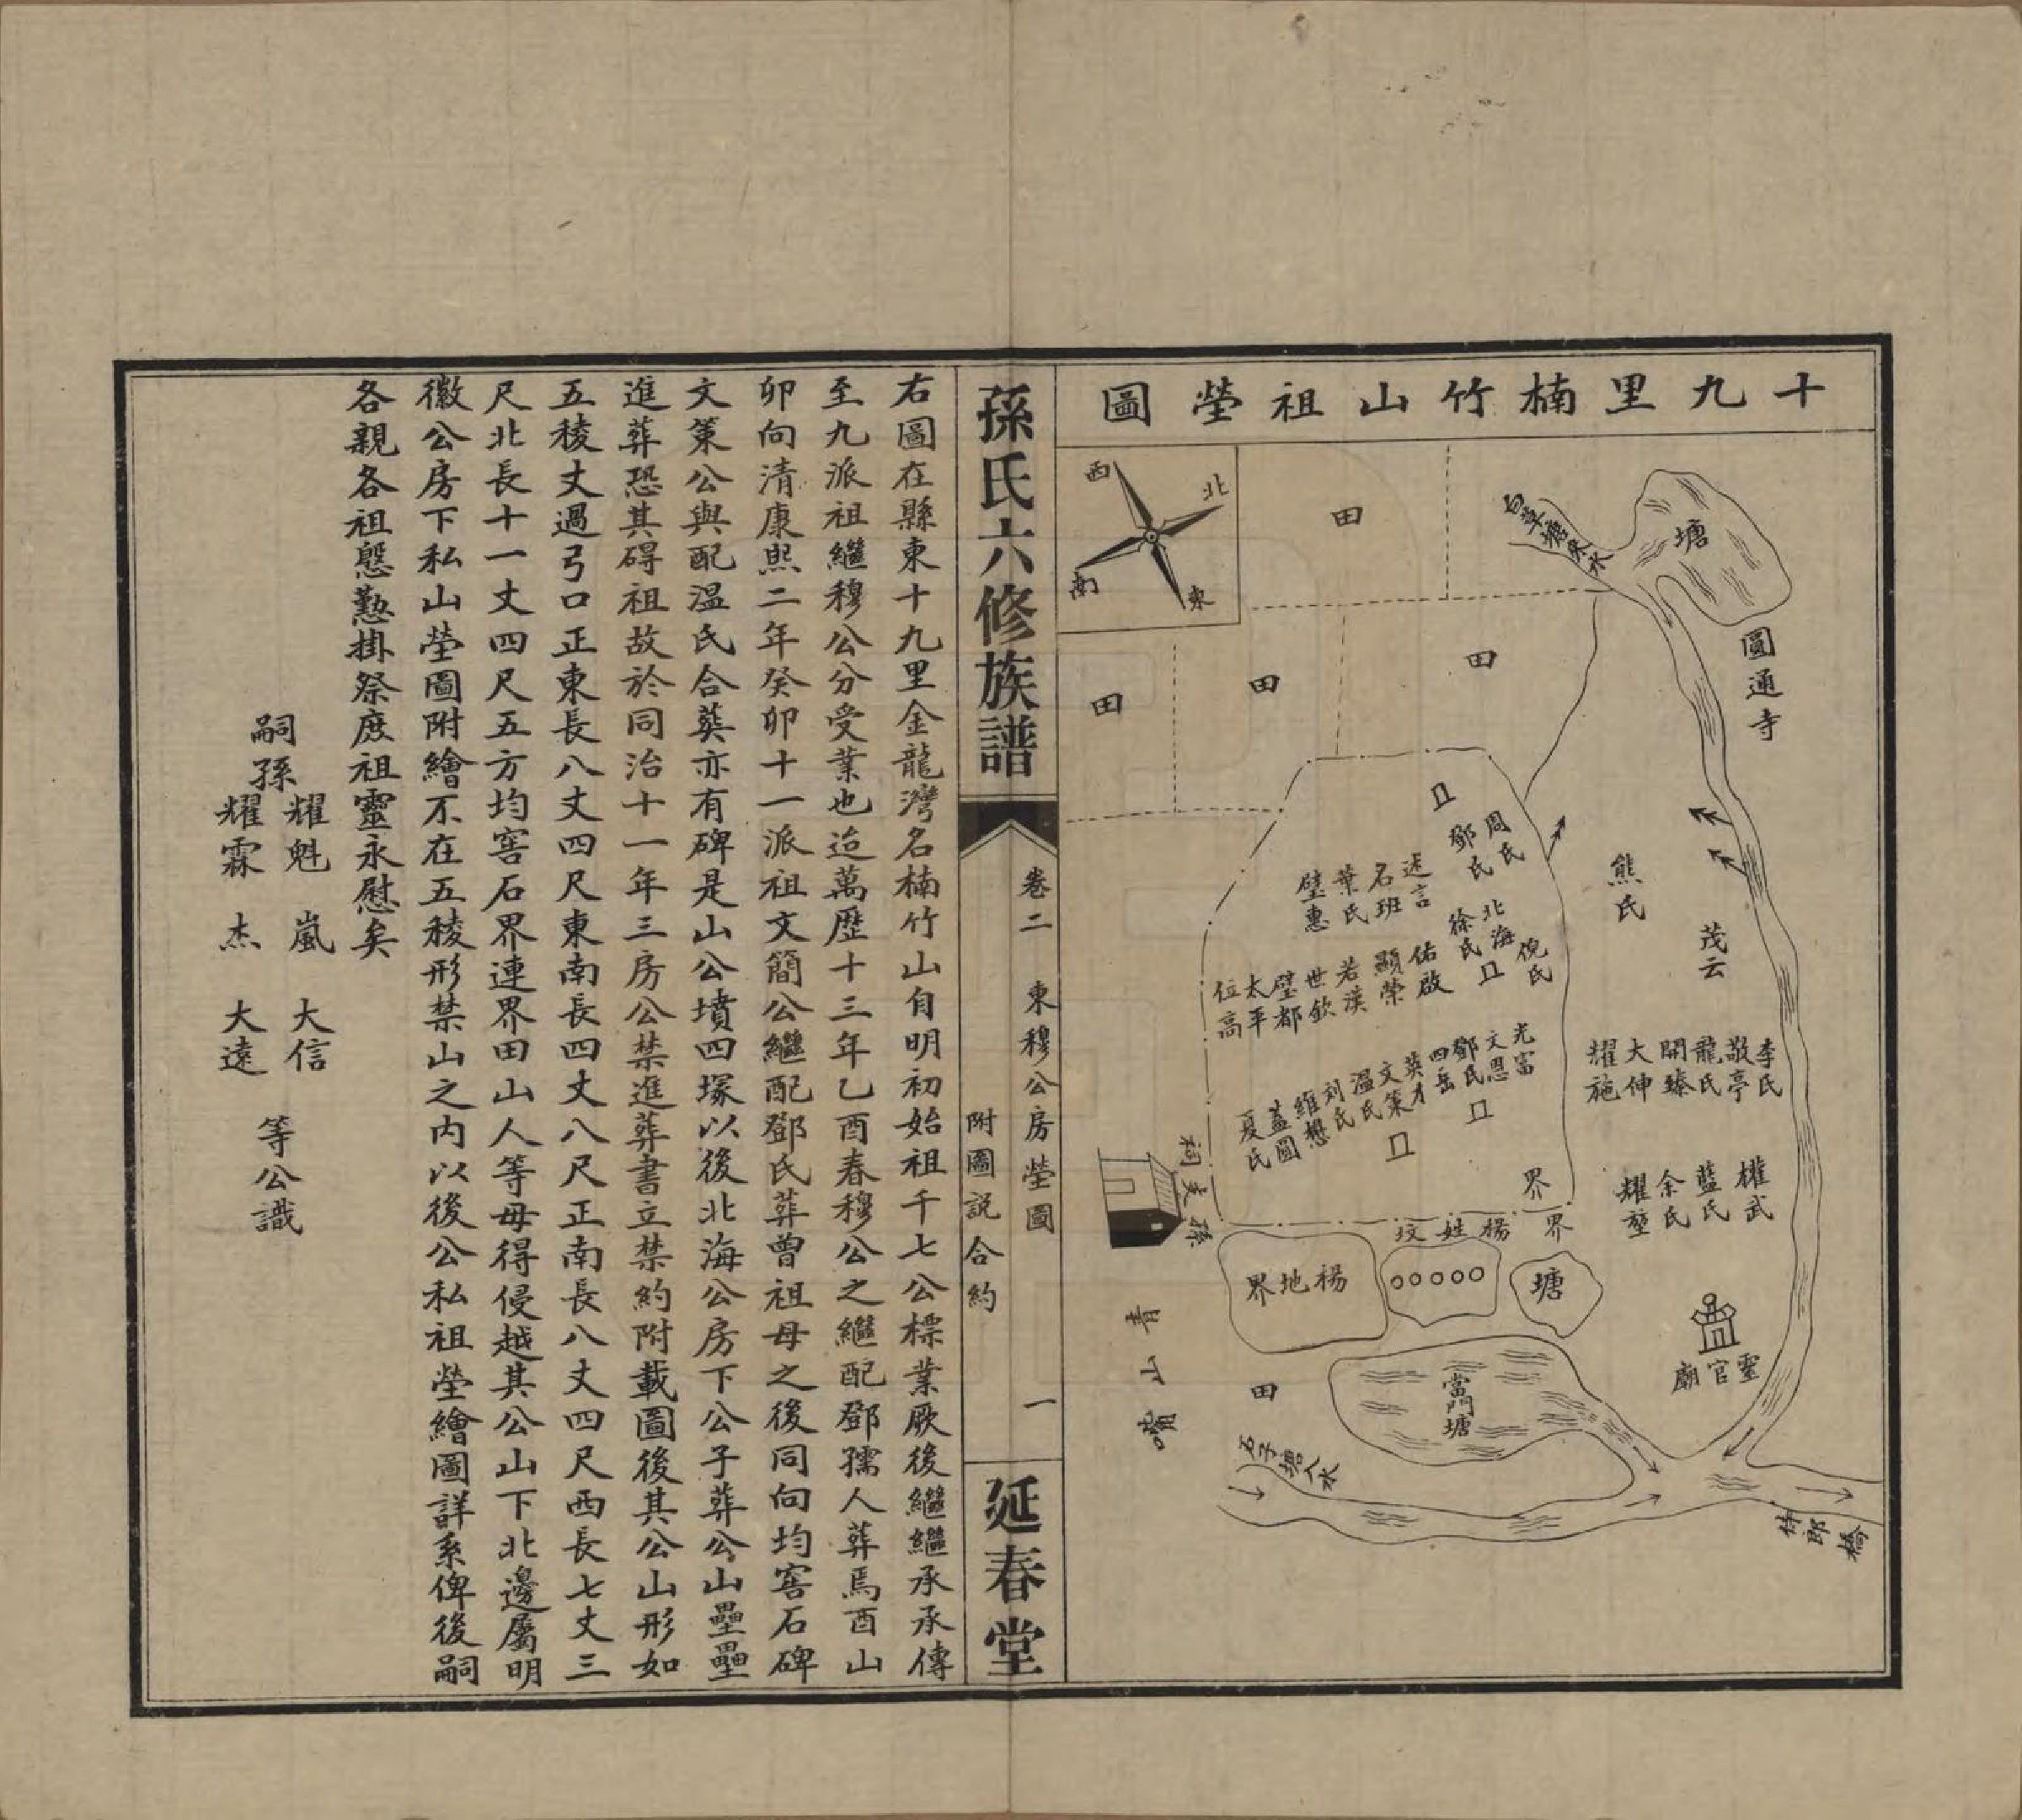 十九里楠竹山祖塋圖
西
北
南
東
田
田
田
田
白草塘來水
塘
圓通寺
周氏
鄧氏
述言
石班
葉氏
璧惠
熊氏
茂云
倪氏
北海
徐氏
佑啟
顯榮
若漢
世欽
璧都
太平
位高
李氏
敬亭
龍氏
開臻
大伸
耀施
光富
文恩
鄧氏
四岳
英才
文策
溫氏
刘氏
維懋
蓋圖
夏氏
權武
藍氏
余氏
耀堃
孫支祠
界
界
楊姓坟
楊地界
塘
靈官廟
青山嘴
田
當門塘
石子塘入水
林郎橋
孫氏六修族譜
卷二 東穆公房塋圖 一
附圖説合約
延春堂
右圖在縣東十九里金龍灣名楠竹山自明初始祖千七公標業厥後繼繼承承傳
至九派祖繼穆公分受業也迨萬歷十三年乙酉春穆公之繼配鄧孺人葬焉酉山
卯向清康熙二年癸卯十一派祖文簡公繼配鄧氏葬曾祖母之後同向均窖石碑
文策公與配溫氏合葬亦有碑是山公墳四塚以後北海公房下公子葬公山壘壘
進葬恐其碍祖故於同治十一年三房公禁進葬書立禁約附載圖後其公山形如
五稜丈過弓口正東長八丈四尺東南長四丈八尺正南長八丈四尺西長七丈三
尺北長十一丈四尺五方均窖石界連界田山人等毋得侵越其公山下北邊屬明
徽公房下私山塋圖附繪不在五稜形禁山之内以後公私祖塋繪圖詳系俾後嗣
各親各祖慇懃掛祭庶祖靈永慰矣
嗣孫
耀魁 嵐 大信
耀霖 杰 大遠
等公識